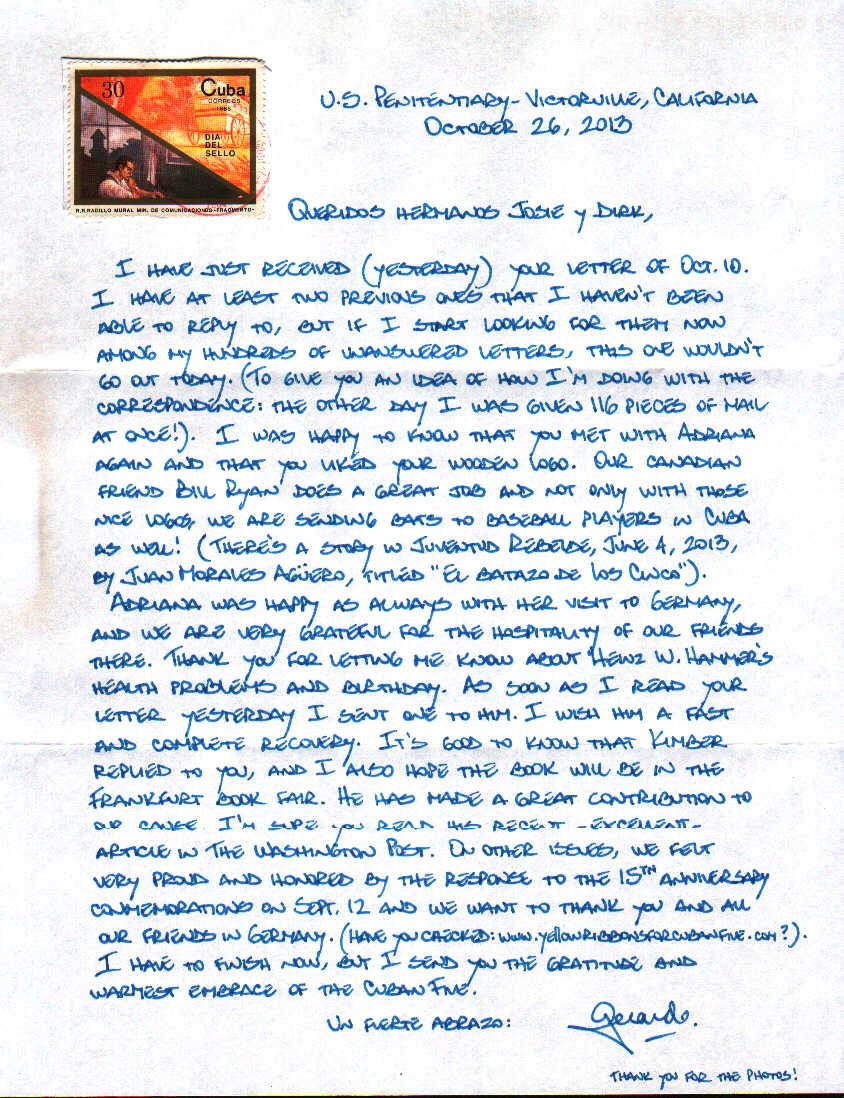 30
Cuba
CORREOS
1985
DIA
DEL
SELLO
R.R.RADILLO MURAL MIN. DE COMUNICACIONES-FRAGMENTO-
U.S. PENITENTIARY - VICTORVILLE, CALIFORNIA
OCTOBER 26, 2013
QUERIDOS HERMANOS JOSIE Y DIRK,
I HAVE JUST RECEIVED (YESTERDAY) YOUR LETTER OF OCT. 10.
I HAVE AT LEAST TWO PREVIOUS ONES THAT I HAVEN'T BEEN
ABLE TO REPLY TO, BUT IF I START LOOKING FOR THEM NOW
AMONG MY HUNDREDS OF UNANSWERED LETTERS, THIS ONE WOULDN'T
GO OUT TODAY. (TO GIVE YOU AN IDEA OF HOW I'M DOING WITH THE
CORRESPONDENCE: THE OTHER DAY I WAS GIVEN 116 PIECES OF MAIL
AT ONCE!). I WAS HAPPY TO KNOW THAT YOU MET WITH ADRIANA
AGAIN AND THAT YOU LIKED YOUR WOODEN LOGO. OUR CANADIAN
FRIEND BILL RYAN DOES A GREAT JOB AND NOT ONLY WITH THOSE
NICE LOGOS, WE ARE SENDING BATS TO BASEBALL PLAYERS IN CUBA
AS WELL! (THERE'S A STORY IN JUVENTUD REBELDE, JUNE 4, 2013,
BY JUAN MORALES AGÜERO, TITLED "EL BATAZO DE LOS CINCO").
ADRIANA WAS HAPPY AS ALWAYS WITH HER VISIT TO GERMANY,
AND WE ARE VERY GRATEFUL FOR THE HOSPITALITY OF OUR FRIENDS
THERE. THANK YOU FOR LETTING ME KNOW ABOUT HEINZ W. HAMMER'S
HEALTH PROBLEMS AND BIRTHDAY. AS SOON AS I READ YOUR
LETTER YESTERDAY I SENT ONE TO HIM. I WISH HIM A FAST
AND COMPLETE RECOVERY. IT'S GOOD TO KNOW THAT KIMBER
REPLIED TO YOU, AND I ALSO HOPE THE BOOK WILL BE IN THE
FRANKFURT BOOK FAIR. HE HAS MADE A GREAT CONTRIBUTION TO
OUR CAUSE. I'M SURE YOU READ HIS RECENT -EXCELLENT-
ARTICLE IN THE WASHINGTON POST. ON OTHER ISSUES, WE FELT
VERY PROUD AND HONORED BY THE RESPONSE TO THE 15TH ANNIVERSARY
CONMEMORATIONS ON SEPT. 12 AND WE WANT TO THANK YOU AND ALL
OUR FRIENDS IN GERMANY. (HAVE YOU CHECKED: WWW.YELLOWRIBBONSFORCUBANFIVE.COM?).
I HAVE TO FINISH NOW, BUT I SEND YOU THE GRATITUDE AND
WARMEST EMBRACE OF THE CUBAN FIVE.
UN FUERTE ABRAZO: Gerardo.
THANK YOU FOR THE PHOTOS!